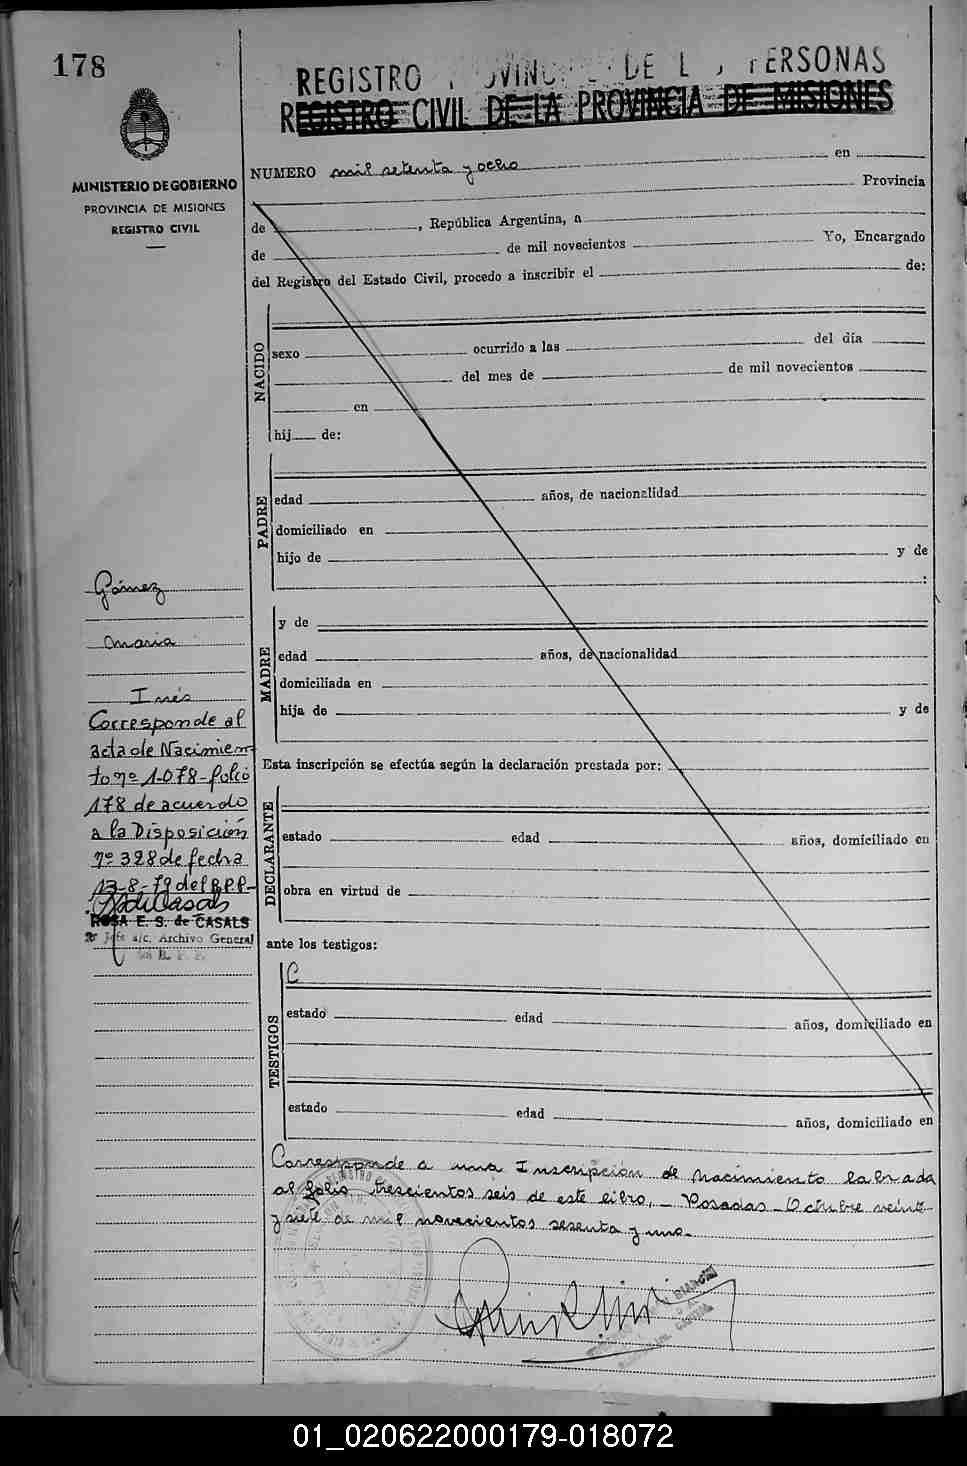 178
REGISTRO DE PERSONAS
REGISTRO CIVIL DE LA PROVINCIA DE MISIONES
MINISTERIO DE GOBIERNO
PROVINCIA DE MISIONES
REGISTRO CIVIL
NUMERO mil setenta y ocho en
Provincia
de , República Argentina, a
de de mil novecientos Yo, Encargado
del Registro del Estado Civil, procedo a inscribir el de:
NACIDO
sexo ocurrido a las del día
del mes de de mil novecientos
en
hij de:
PADRE
edad años, de nacionalidad
domiciliado en
hijo de y de
:
MADRE
y de
edad años, de nacionalidad
domiciliada en
hija de y de
Esta inscripción se efectúa según la declaración prestada por:
DECLARANTE
estado edad años, domiciliado en
obra en virtud de
ante los testigos:
TESTIGOS
C
estado edad años, domiciliado en
estado edad años, domiciliado en
Corresponde a una Inscripción de Nacimiento labrada
al folio trescientos seis de este libro, - Posadas - Octubre veinti
y siete de mil novecientos sesenta y uno.-
BIANCHI
Gómez
Maria
Inés
Corresponde al
acta de Nacimien
to nº 1.078 - folio
178 de acuerdo
a la Disposición
nº 328 de fecha
13-8-79 del R.P.P.
ROSA E. S. de CASALS
Jefe a/c. Archivo General
R. P. P.
01_020622000179-018072